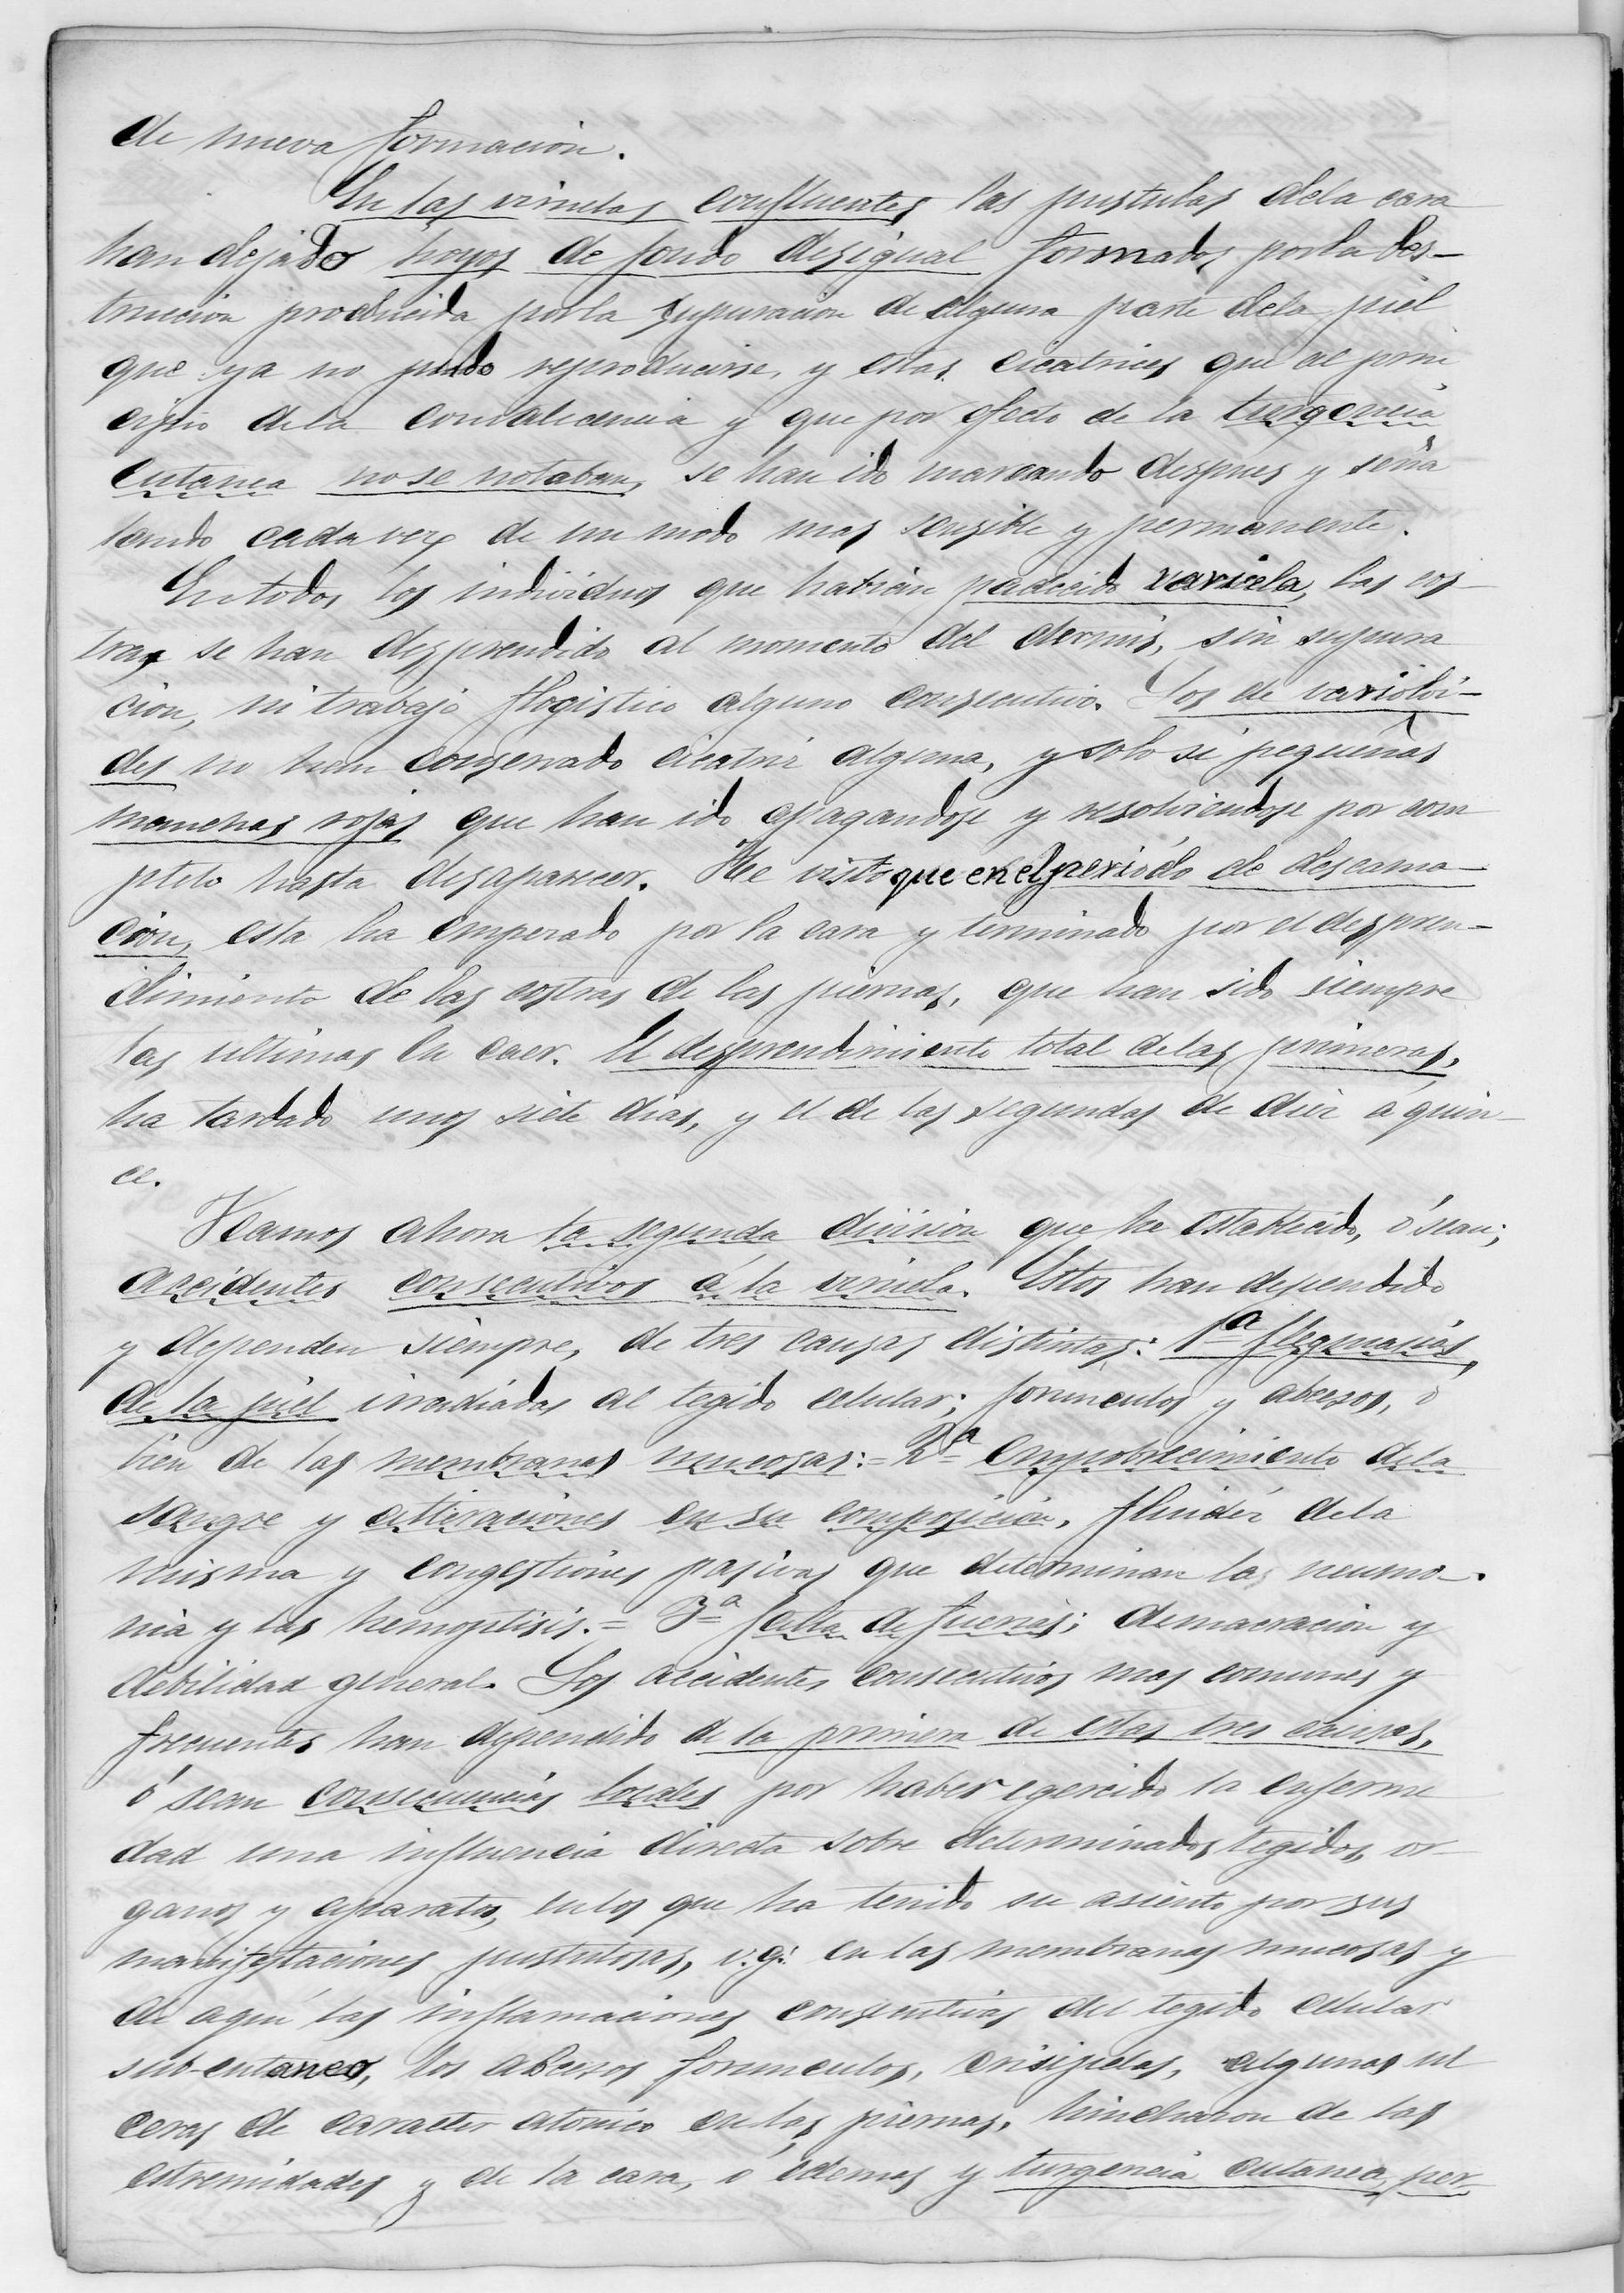 de nueva formacion.
En las viruelas confluentes las pustulas dela cara
han dejado hoyos de fondo desigual formados porla des-
truccion producida porla supuracion de alguna parte dela piel
que ya no pudo reproducirse, y estas cicatrices que al prin
cipio dela convalecencia y que por efecto de la turgencia
cutanea no se notaban, se han ido marcando despues y seña
lando cada vez de un modo mas sensible y permanente.
En todos los individuos que habian padecido varicela, las cos-
tras se han desprendido al momento del dermis, sin supura
cion, ni trabajo flogistico alguno consecutivo. Los de varioloi-
des no han conservado cicatriz alguna, y solo si pequeñas
manchas rojas que han ido apagandose y resolviendose por com
pleto hasta desaparecer. He visto que en el periódo de descama-
cion, esta ha empezado por la cara y terminado por el despren-
dimiento de las costras de las piernas, que han sido siempre
las ultimas en caer. El desprendimiento total delas primeras,
ha tardado unos siete dias, y el de las segundas de diez á quin-
ce.
Veamos ahora la segunda division que he establecido, ó sean;
accidentes consecutivos á la viruela. Estos han dependido
y dependen siempre, de tres causas distintas: 1ª flegmasias,
de la piel irradiadas al tegido celular; forunculos y abcesos, ó
bien de las membranas mucosas:= 2ª Empobrecimiento dela
sangre y alteraciones en su composicion, fluidéz dela
misma y congestiones pasivas que determinan las neumo-
nia y las hemoptisis.= 3ª falta de fuerzas; demacracion y
debilidad general. Los accidentes consecutivos mas comunes y
frecuentes han dependido de la primera de estas tres causas,
ó sean consecuencias locales por haber egercido la enferme
dad una influencia directa sobre determinados tegidos, or-
ganos y aparatos, en los que ha tenido su asiento por sus
manifestaciones pustulosas, v.g: en las membranas mucosas y
de aquí las inflamaciones consecutivas del tegido celular
sub-cutaneo, los abcesos forunculos, erisipelas, algunas ul
ceras de caracter atonico en las piernas, hinchazon de las
estremidades y de la cara, ó edemas y turgencia cutanea, per-